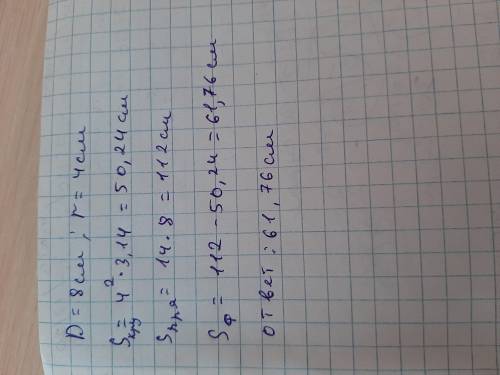 D = 8 см ; r = 4 см
Sкру = 4² · 3,14 = 50,24 см
Sпря = 14 · 8 = 112 см
Sф = 112 - 50,24 = 61,76 см
ответ : 61,76 см